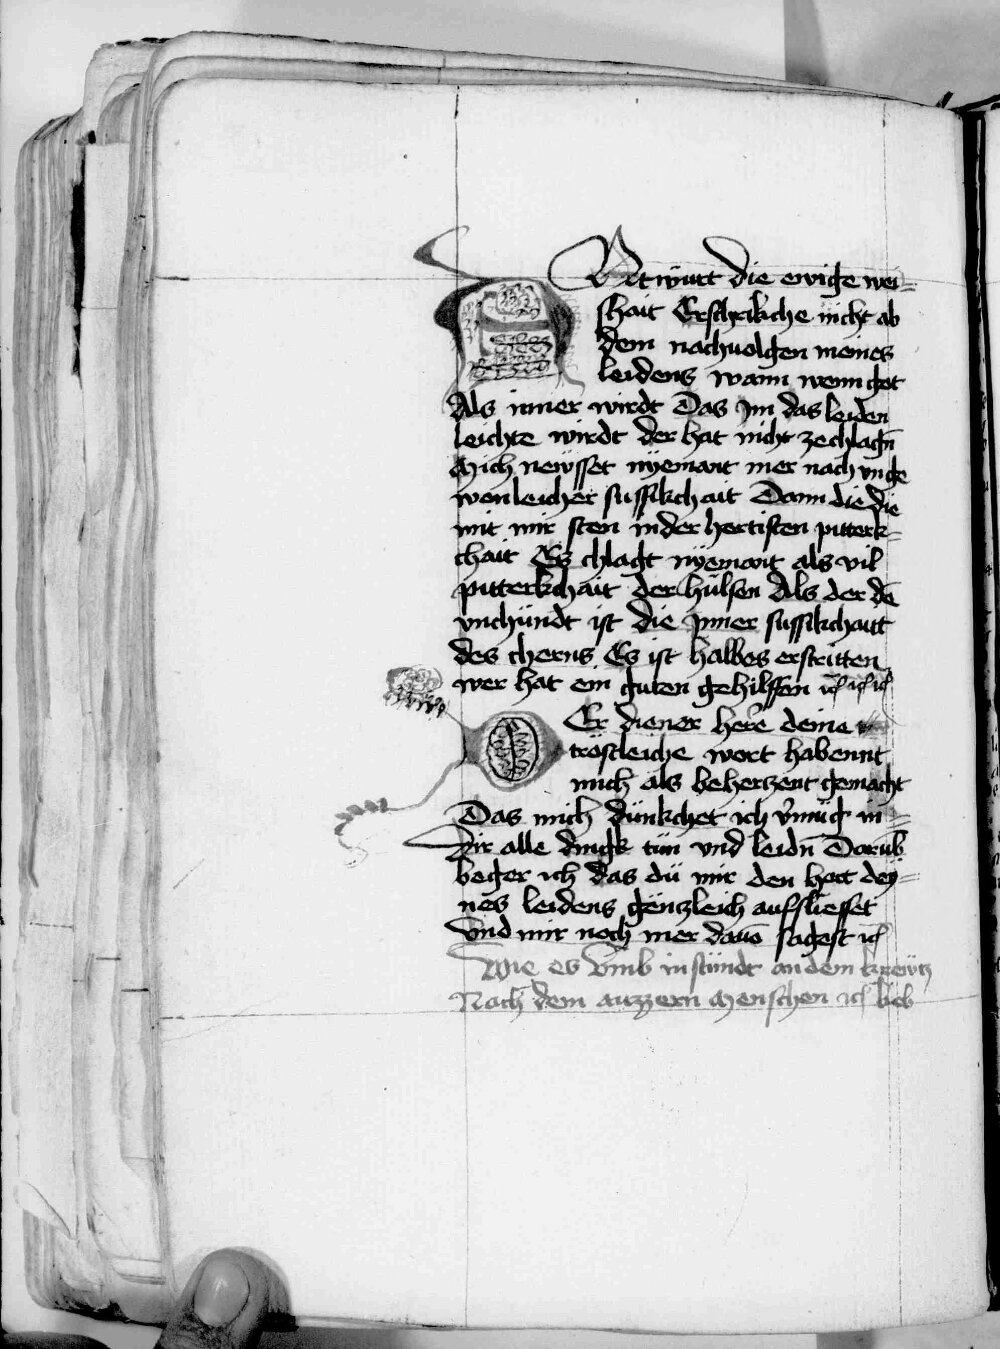 ANtwurt die ewige wei=
shait Erschrikche nicht ab
dem nachuolgen meines
leidens wann wenn got
Als inner wirdt Das im das leiden
leichte wirdt der hat nicht zechlagn̄
Mich neẅsset nÿemant mer nach vnge
wonleicher sussikchait Dann die die
mit mir sten in der hertisten pitterk=
chait Es chlagt nÿemant als vil
pitterkchait der hülsen Als der dē
vnchündt ist die Inner sussikchait
des cherns Es ist halbes erstritten
wer hat ein guten gehilffen
DEr diener here deine
tröstleiche wort habennt
mich als beherzent gemacht
Das mich dünkchet ich v̄müg in=
Dir alle dingk tün vnd leidn̄ Darub
beger ich das dü mir den hort deÿ=
nes leidens gënzleich aufsliesset
Vnd mir noch mer dauō sagest
Wie es vmb in stündt an dem krewtz
Nach dem auzzern Menschen